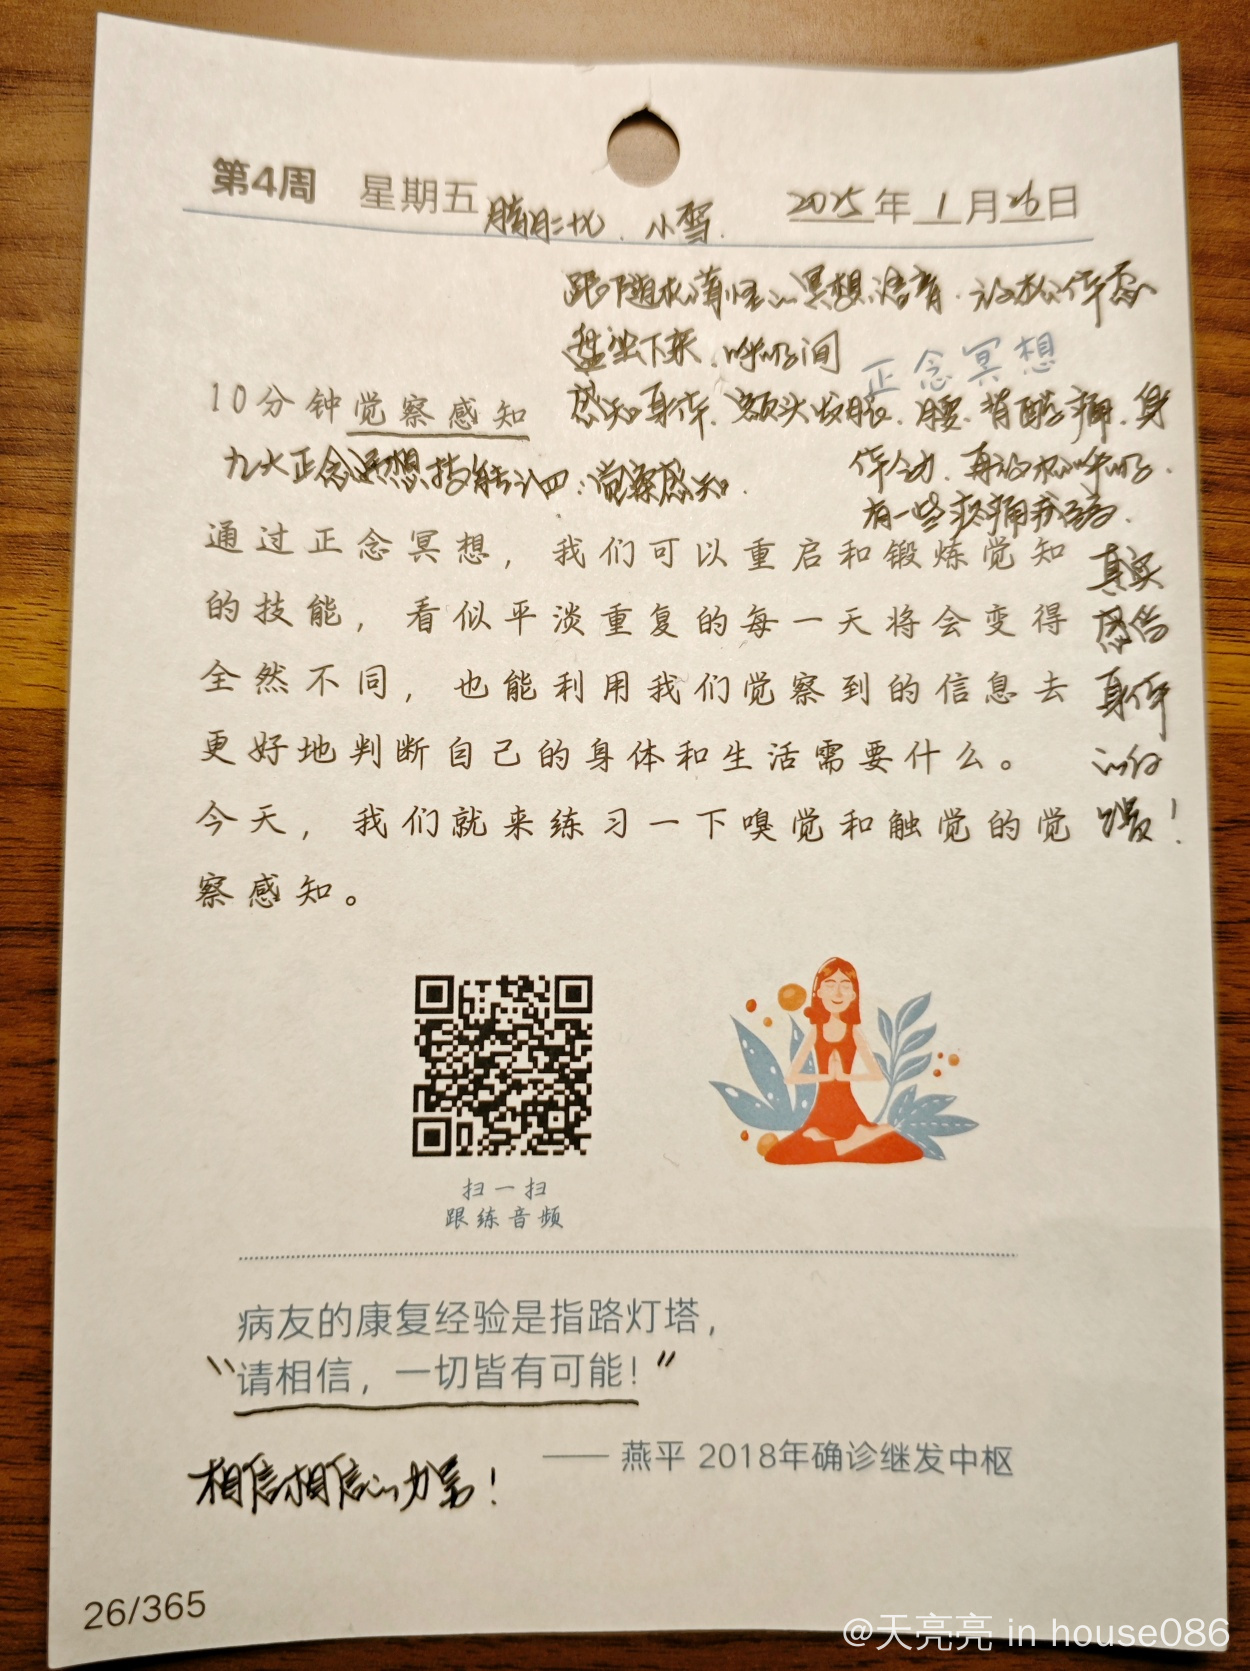 第4周 星期五 腊月二十七. 小雪. 2025年1月26日
跟随水薄怪的冥想语音.
盘坐下来.呼吸间
正念冥想
10分钟觉察感知
感知身体.额头发胀.腰.背酸痛.身
九大正念冥想技能之四:觉察感知.
体今动.再次
有一些疼痛
通过正念冥想，我们可以重启和锻炼觉知
真实
的技能，看似平淡重复的每一天将会变得
感苦
全然不同，也能利用我们觉察到的信息去
身体
更好地判断自己的身体和生活需要什么。
今天，我们就来练习一下嗅觉和触觉的觉
察感知。
扫一扫
跟练音频
病友的康复经验是指路灯塔，
"请相信，一切皆有可能！"
—— 燕平 2018年确诊继发中枢
相信相信的力量！
26/365
@天亮亮 in house086